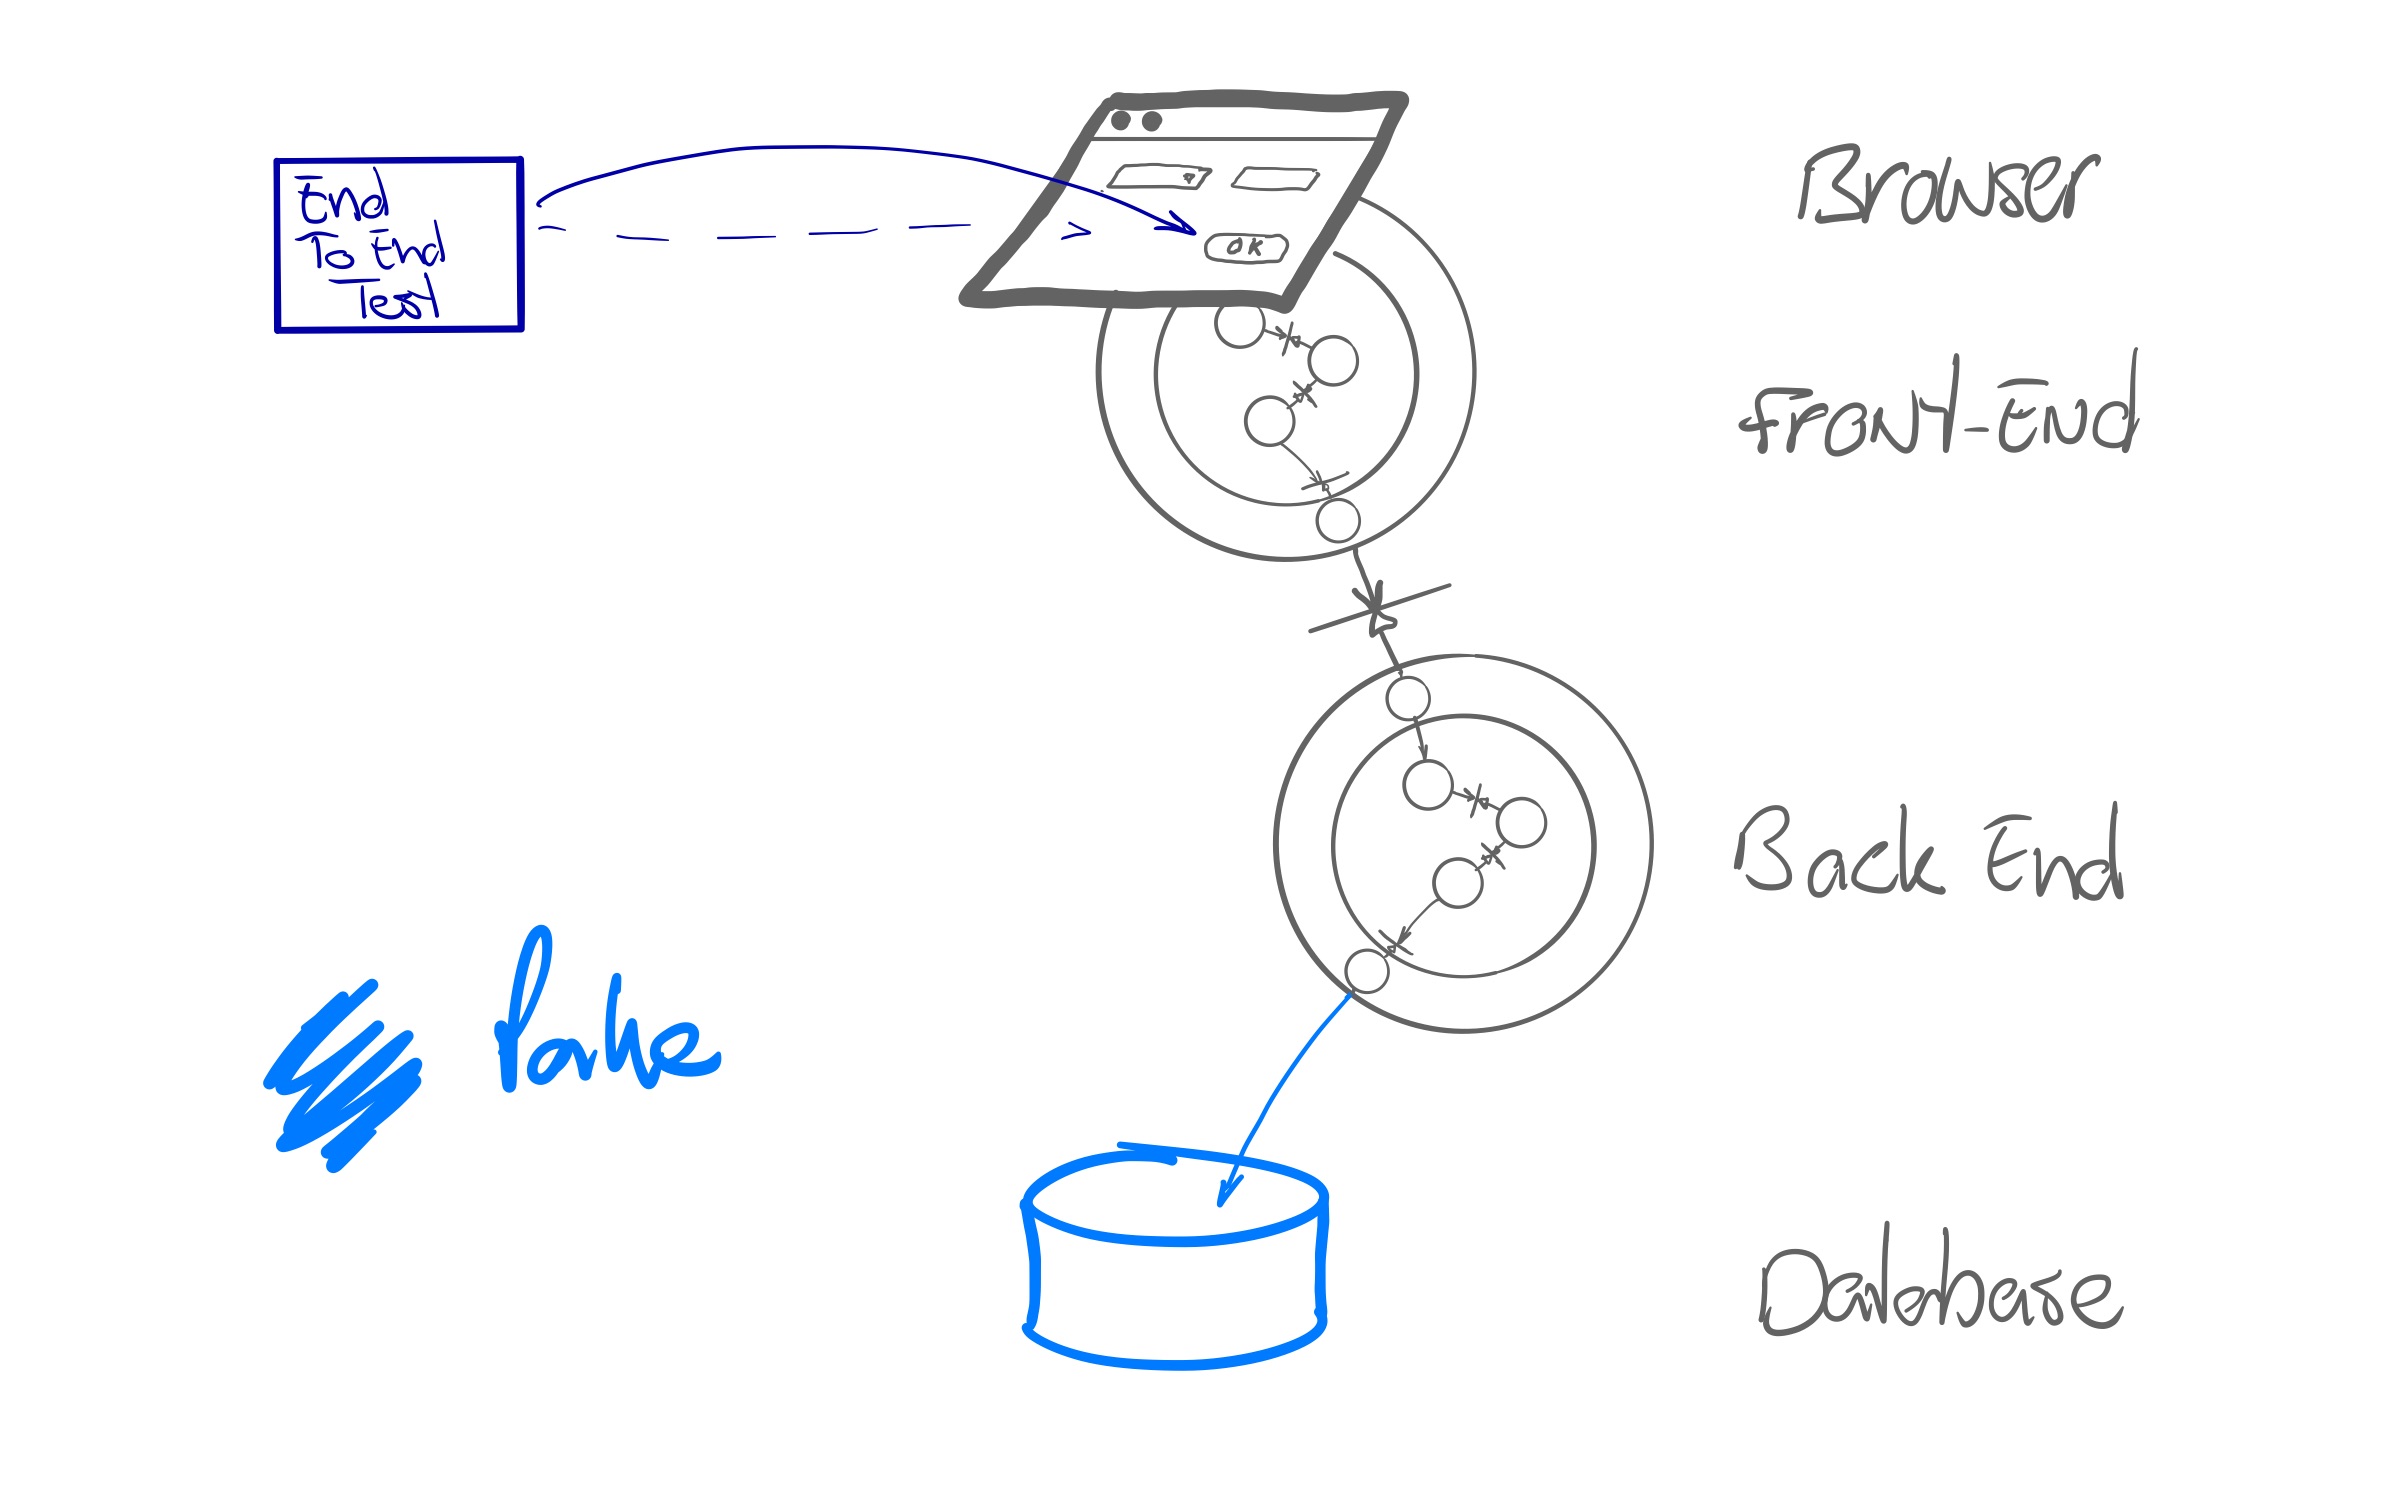 End
To End
Test
OK
Browser
Front-End
Back End
Database